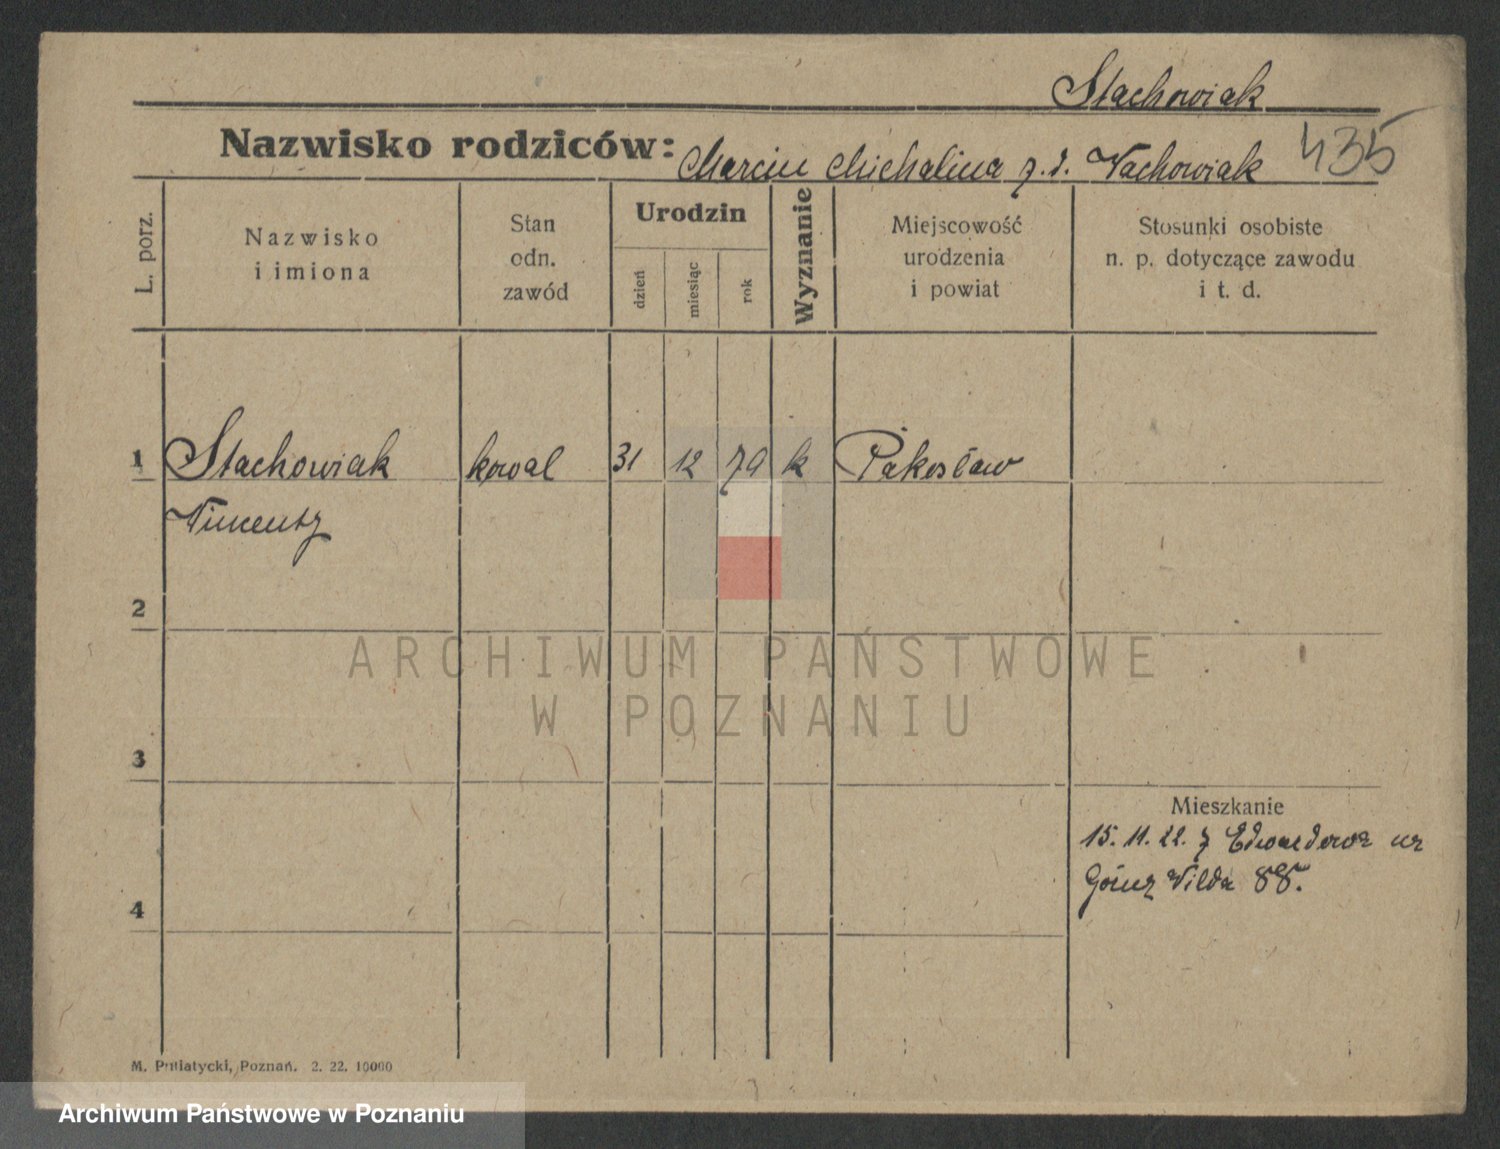 Stachowiak
Nazwisko rodziców: Marcin Michalina z. d. Wachowiak 435
L. porz.
Nazwisko
i imiona
Stan
odn.
zawód
Urodzin
dzień
miesiąc
rok
Wyznanie
Miejscowość
urodzenia
i powiat
Stosunki osobiste
n. p. dotyczące zawodu
i t. d.
1 Stachowiak kowal 31 12 79 k Pakosław
Wincenty
2
ARCHIWUM PAŃSTWOWE
W POZNANIU
3
Mieszkanie
15. 11. 22. z Edwardowa na
Górną Wildę 88.
4
M. Putiatycki, Poznań. 2. 22. 10000
Archiwum Państwowe w Poznaniu